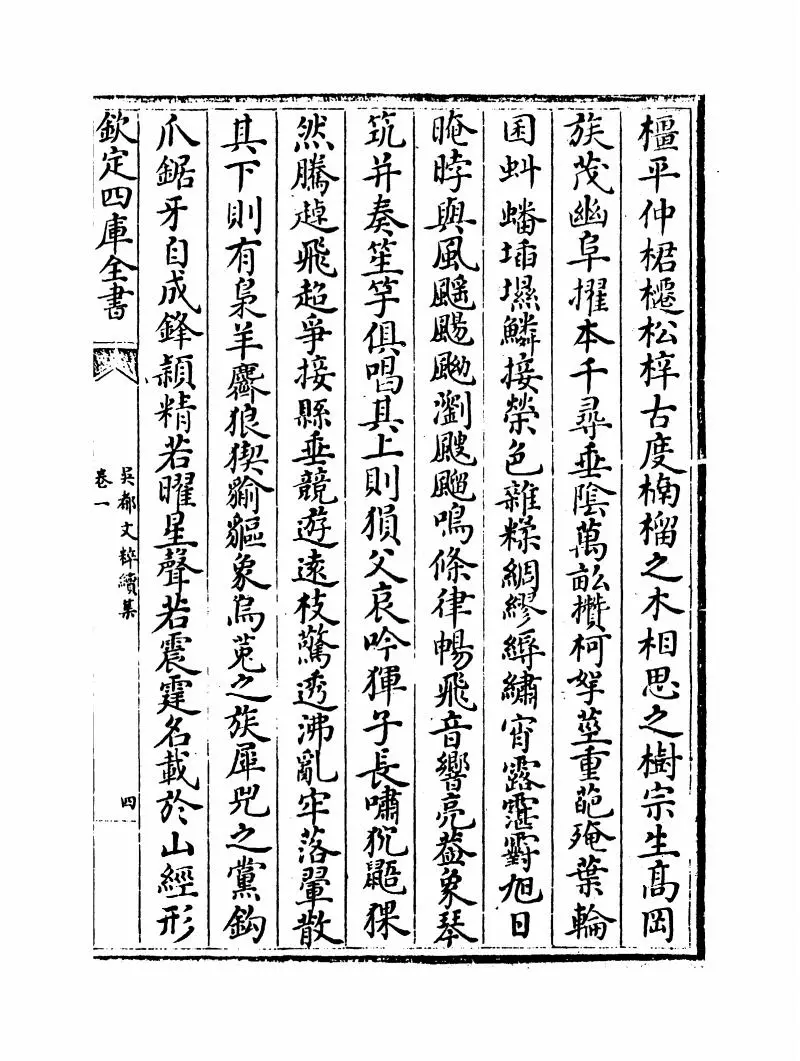 橿平仲桾櫏松梓古度楠榴之木相思之樹宗生高岡
族茂幽阜擢本千尋垂陰萬畝攢柯挐莖重葩殗葉輪
囷虯蟠插㙷鱗接榮色雜糅綢繆縟繡宵露霮䨴旭日
晻㫲與風䬙颺颵瀏颼飀鳴條律暢飛音響亮蓋象琴
筑并奏笙竽俱唱其上則猨父哀吟獋子長嘯狖鼯猓
然騰趠飛超爭接縣垂競遊遠枝驚透沸亂牢落翬散
其下則有梟羊麡狼猰貐貙象烏菟之族犀兕之黨鈎
爪鋸牙自成鋒穎精若曜星聲若震霆名載於山經形
欽定四庫全書
吳都文粹續集
卷一
四